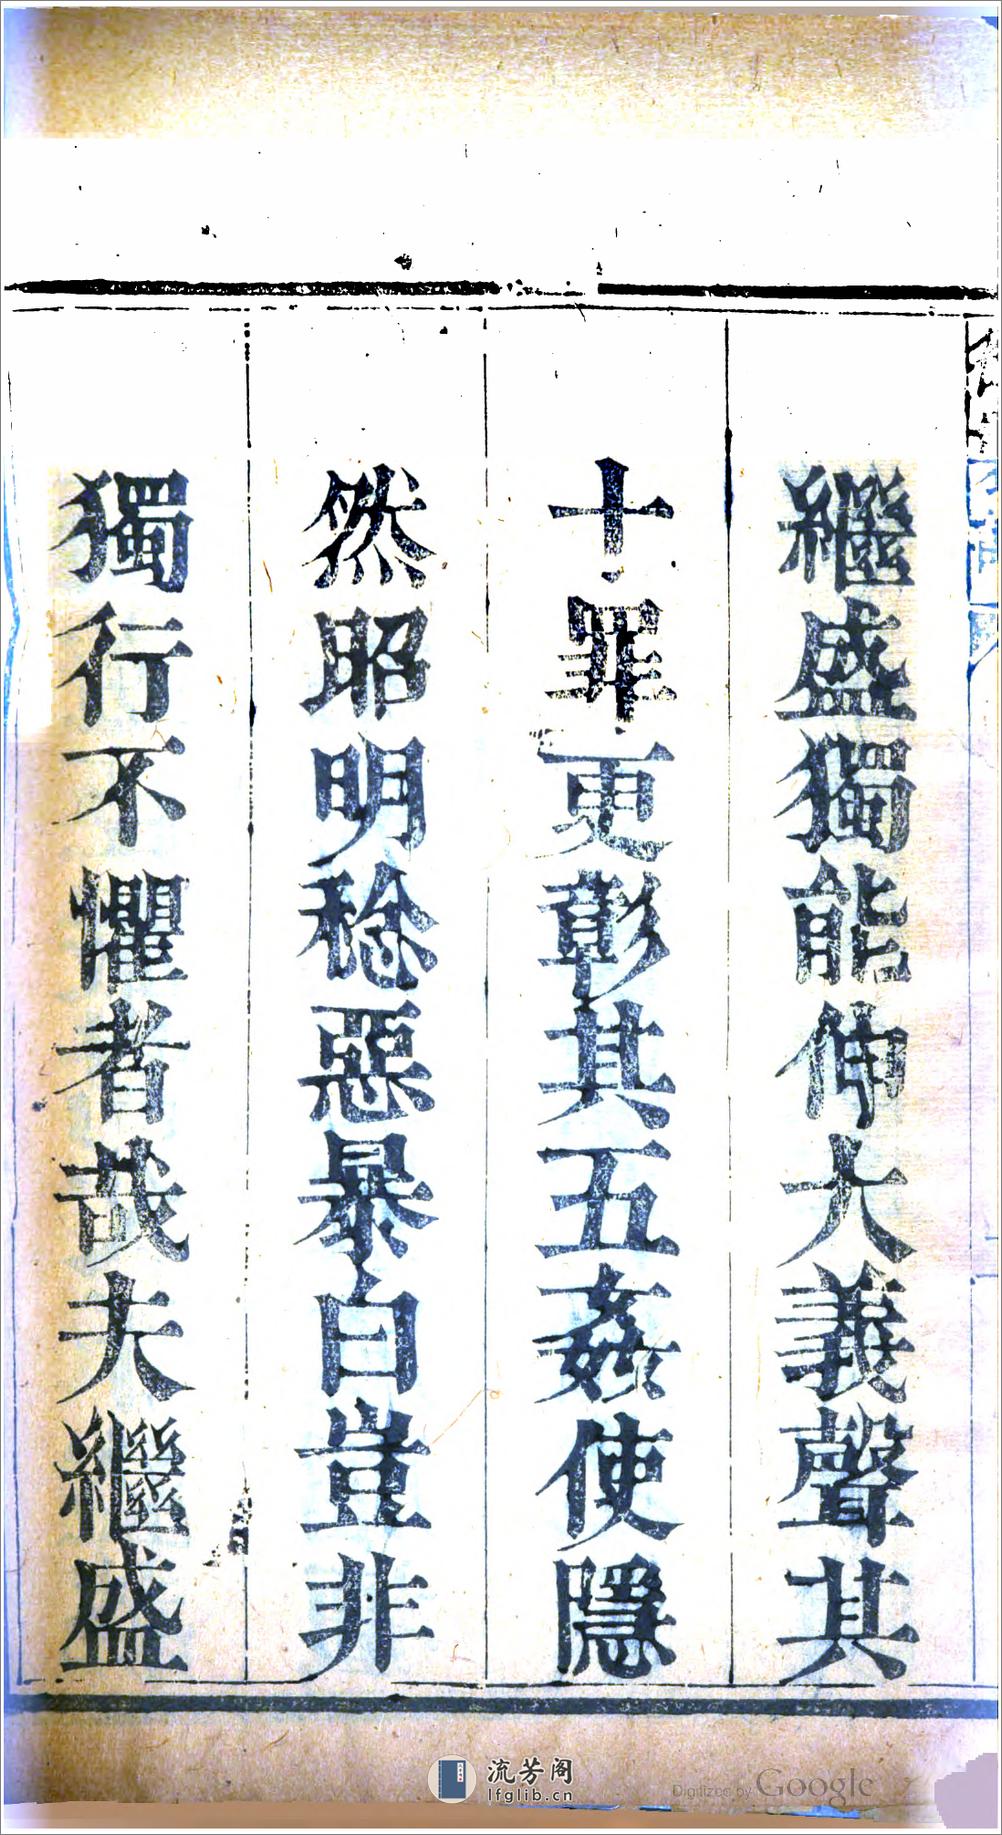 繼盛獨能伸大義聲其
十罪更彰其五姦使隱
然昭明稔惡暴白豈非
獨行不懼者哉夫繼盛
流芳阁
lfglib.cn
Digitized by Google